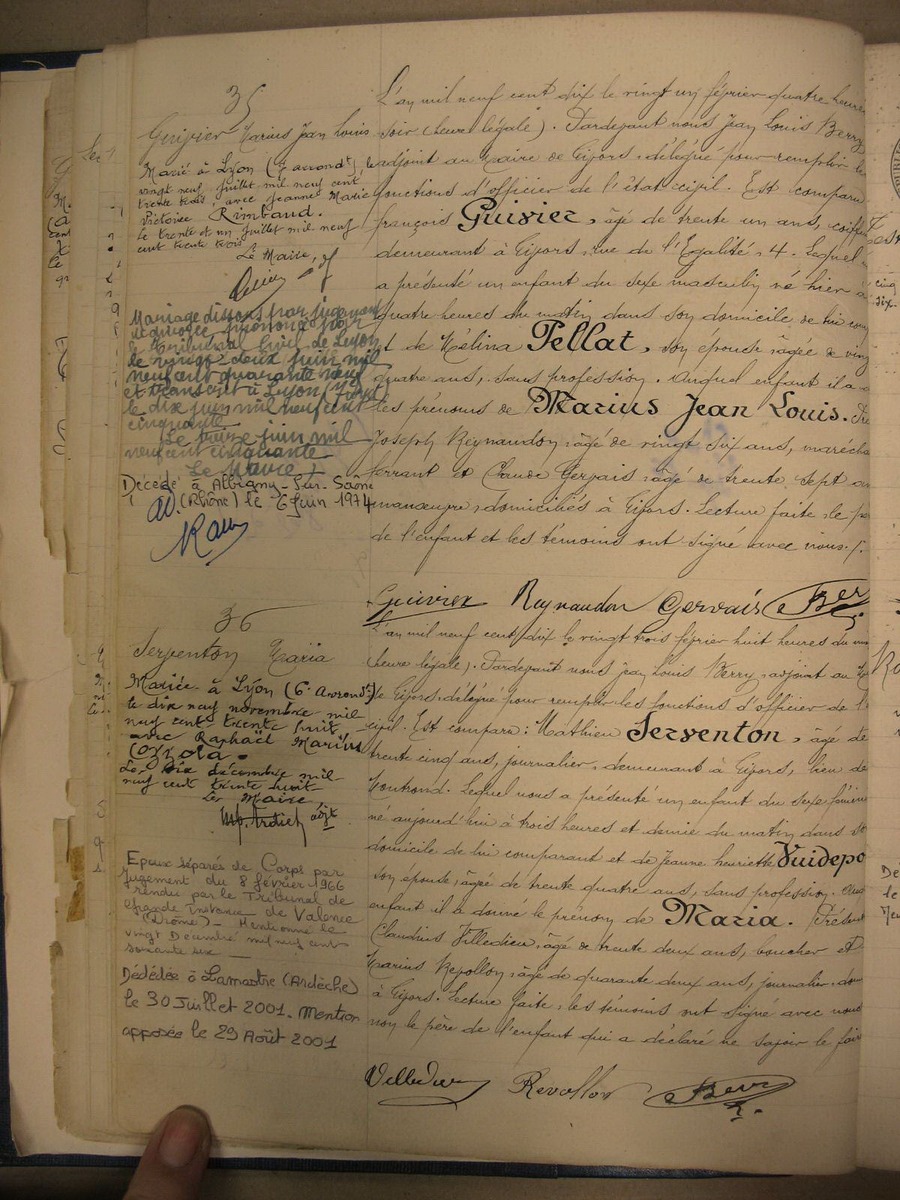 35
Guivier Marius Jean Louis
Marié à Lyon (7 arrondt) le
vingt neuf Juillet mil neuf cent
trente trois, avec Jeanne Marie
Victoire Rimbaud.
le trente et un Juillet mil neuf
cent trente trois
Le Maire,
Mariage dissous par jugement
de divorce prononcé par
le Tribunal Civil de Lyon
le vingt deux juin mil
neuf cent quarante neuf
et transcrit à Lyon
le dix juin mil neuf cent
cinquante
Le treize juin mil
neuf cent cinquante
Le Maire
Décédé à Albigny-Sur-Saône
(Rhône) le 6 Juin 1974
L'an mil neuf cent dix le vingt un février quatre heures
soir (heure légale). Pardevant nous Jean Louis Berry
adjoint au Maire de Givors, délégué pour remplir les
fonctions d'officier de l'état civil. Est comparu
françois Guivier, âgé de trente un ans, coiffeur
demeurant à Givors, rue de l'Egalité, 4. Lequel
a présenté un enfant du sexe masculin né hier à
quatre heures du matin dans son domicile de lui com
et de Mélina Pellat, son épouse âgée de vingt
quatre ans, sans profession. Auquel enfant il a
les prénoms de Marius Jean Louis.
Joseph Reynaudon, âgé de vingt six ans, marécha
ferrant et Claude Gervais, âgé de trente sept an
manœuvre, domiciliés à Givors. Lecture faite, le p
de l'enfant et les témoins ont signé avec nous./.
Guivier Reynaudon Gervais Ber
36
Serventon Maria
Mariée à Lyon (6e Arrondt)
le dix neuf novembre mil
neuf cent trente huit
avec Raphaël Marius
Le dix décembre mil
neuf cent trente huit
Le Maire,
adjt
Epoux séparés de Corps par
Jugement du 8 février 1966
rendu par le Tribunal de
Grande instance de Valence
(Drôme) - Mentionné le
vingt Décembre mil neuf cent
soixante six
Dédédée à Lamastre (Ardèche)
le 30 Juillet 2001. Mention
apposée le 29 Août 2001
L'an mil neuf cent dix le vingt trois février huit heures du
(heure légale). Pardevant nous Jean Louis Berry, adjoint au
de Givors, délégué pour remplir les fonctions d'officier de l'
civil. Est comparu: Mathieu Serventon, âgé de
trente cinq ans, journalier, demeurant à Givors, lieu de
Montrond. Lequel nous a présenté un enfant du sexe fémin
né aujourd'hui à trois heures et demie du matin dans
domicile de lui comparant et de Jeanne henriette Vuidepo
son épouse, âgée de trente quatre ans, sans profession.
enfant il a donné le prénom de Maria. Présen
Claudius Villedieu, âgé de trente deux ans, boucher et
Marius Revollon, âgé de quarante deux ans, journalier, dom
à Givors. Lecture faite, les témoins ont signé avec nous
non le père de l'enfant qui a déclaré ne savoir le fair
Villedieu Revollon Berry